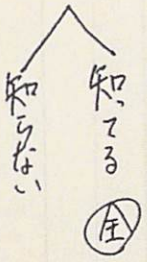 知ってる
全
知らない